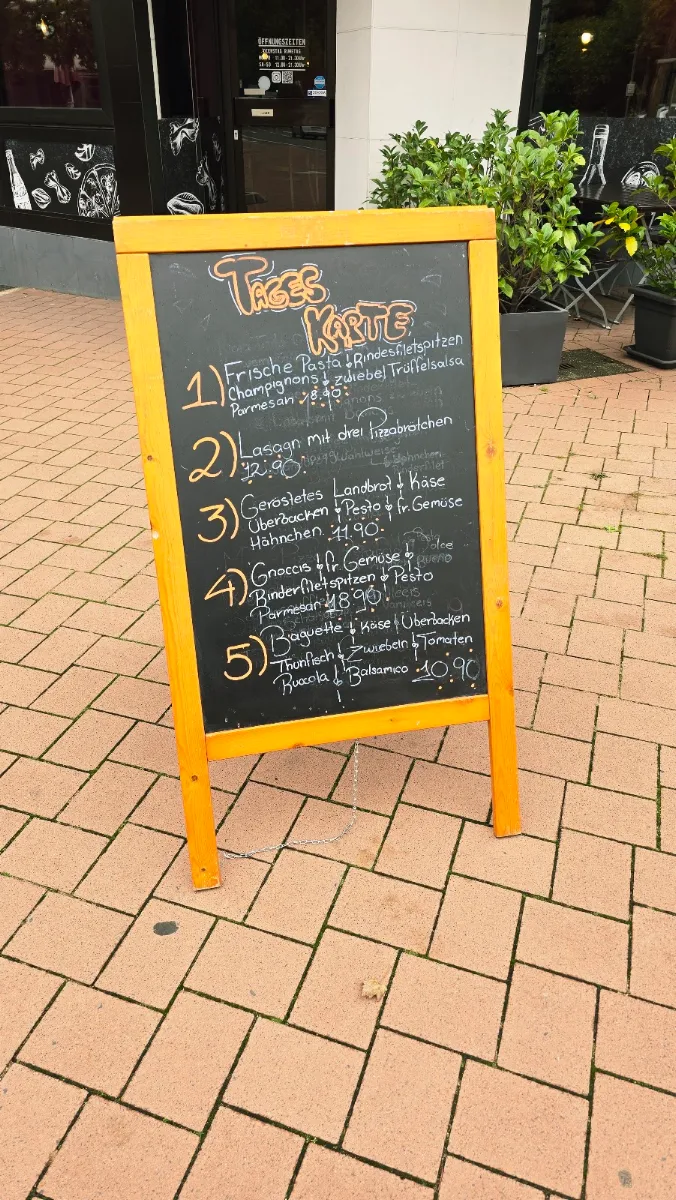 ÖFFNUNGSZEITEN
TAGES
KARTE
1) Frische Pasta Rindesfiletspitzen
Champignons zwiebel Trüffelsalsa
Parmesan 18.90
2) Lasagn mit drei Pizzabrötchen
12.90
3) Geröstetes Landbrot Käse
Überbacken Pesto fr. Gemüse
Hähnchen 11.90
4) Gnoccis fr. Gemüse
Rinderfiletspitzen Pesto
Parmesan 18.90
5) Baguette Käse Überbacken
Thunfisch Zwiebeln Tomaten
Rucola Balsamico 10.90